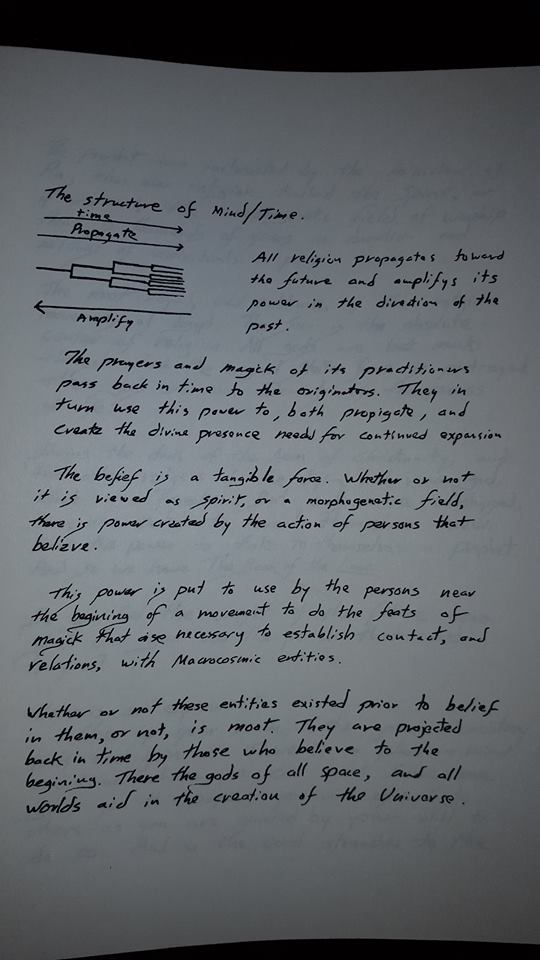 The structure of Mind/Time.
time
Propagate
All religion propagates toward
the future and amplifys its
power in the direction of the
past.
Amplify
The prayers and magick of its practitioners
pass back in time to the originators. They in
turn use this power to, both propigate, and
create the divine presence need for continued expansion
The belief is a tangible force. Whether or not
it is viewed as spirit, or a morphogenetic field,
there is power created by the action of persons that
believe.
This power is put to use by the persons near
the begining of a movement to do the feats of
magick that are necessary to establish contact, and
relations, with Macrocosmic entities.
Whether or not these entities existed prior to belief
in them, or not, is moot. They are projected
back in time by those who believe to the
begining. There the gods of all space, and all
worlds aid in the creation of the Universe.